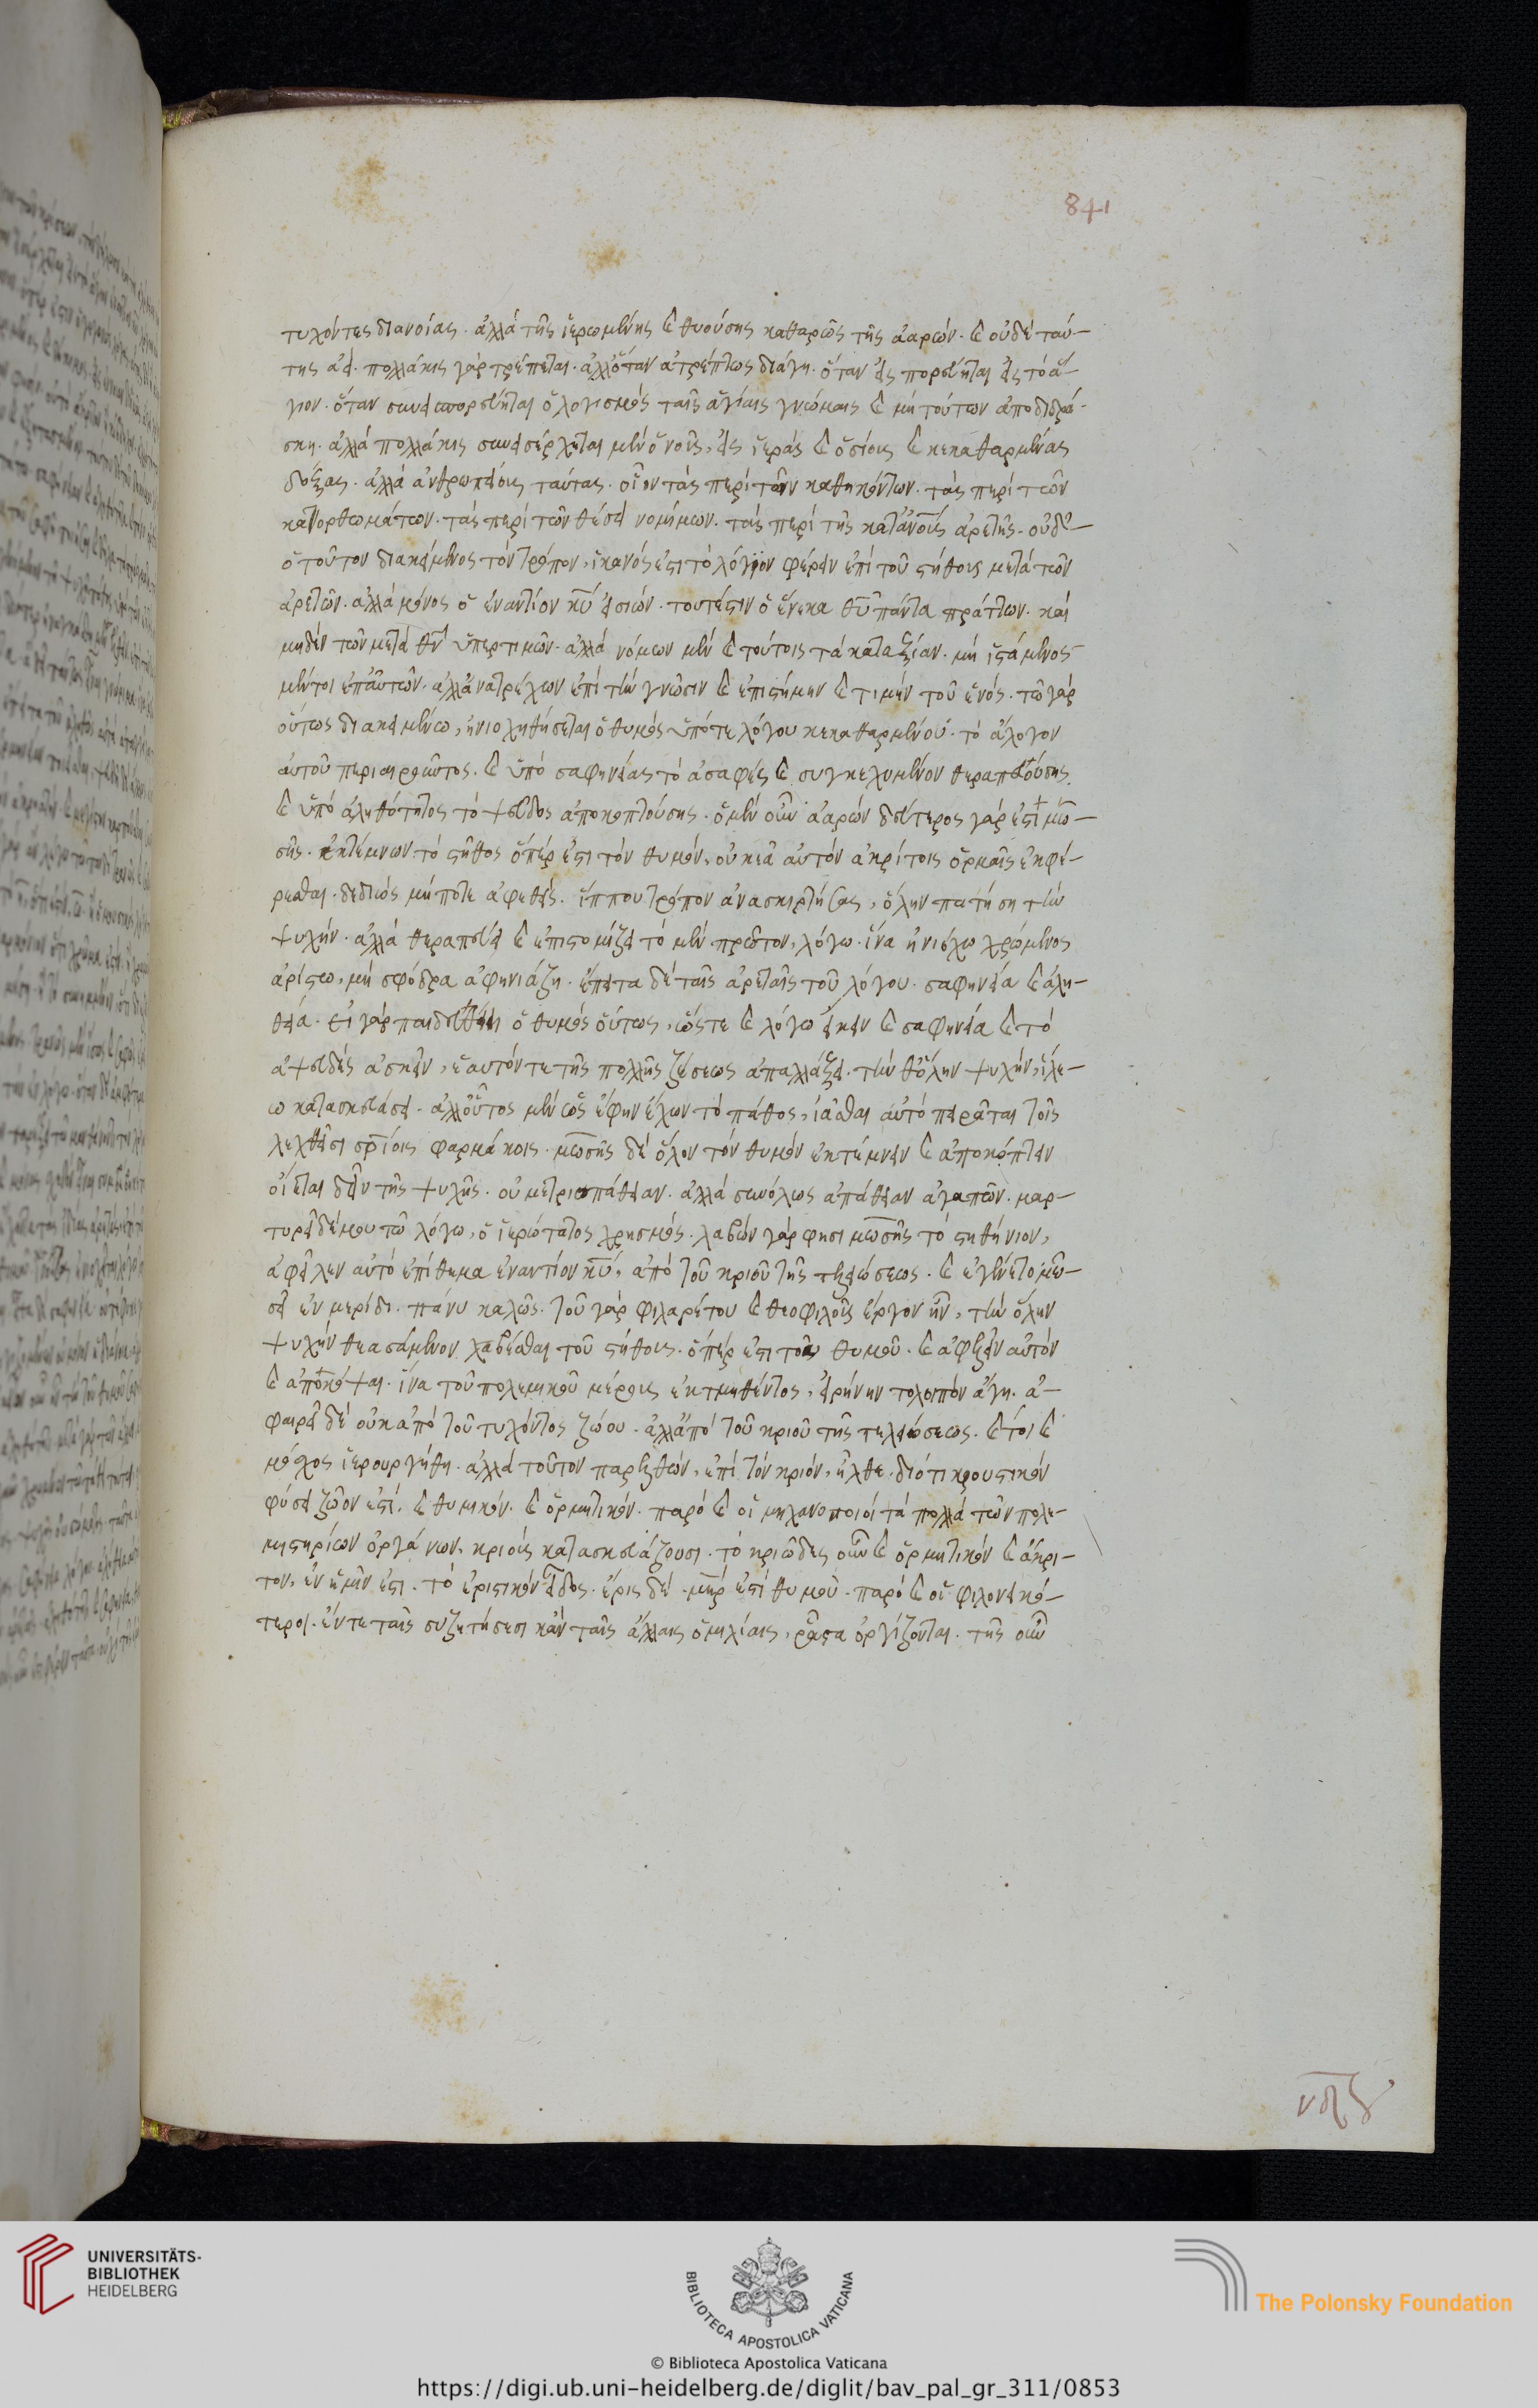 841
τυχόντες διανοίας. ἀλλὰ τῆς ἱερωμένης καὶ θυούσης καθαρῶς τῆς ἀαρών. καὶ οὐδὲ ταύ-
της ἀεί. πολλάκις γὰρ τρέπεται. ἀλλ' ὅταν ἀτρέπτως διάγη. ὅταν εἰσπορεύηται εἰς τὸ ἅ-
γιον. ὅταν συνεισπορεύηται ὁ λογισμὸς ταῖς ἁγίαις γνώμαις καὶ μὴ τούτων ἀποδιδρά-
σκη. ἀλλὰ πολλάκις συνεισέρχεται μὲν ὁ νοῦς, εἰς ἱερὰς καὶ ὁσίους καὶ κεκαθαρμένας
δόξας. ἀλλὰ ἀνθρωπείους ταύτας. οἷον τὰς περὶ τῶν καθηκόντων. τὰς περὶ τῶν
κατορθωμάτων. τὰς περὶ τῶν θέσει νομίμων. τὰς περὶ τῆς κατ' ἀνους ἀρετῆς. οὐδ'
ὁ τοῦτον διακείμενος τὸν τρόπον, ἱκανός ἐστι τὸ λόγιον φέρειν ἐπὶ τοῦ στήθους μετὰ τῶν
ἀρετῶν. ἀλλὰ μόνος ὁ ἐναντίον κυ εἰσιών. τουτέστιν ὁ ἕνεκα θυ πάντα πράττων. καὶ
μηδὲν τῶν μετὰ θν ὑπερτιμῶν. ἀλλὰ νόμων μὲν καὶ τούτοις τὰ κατ' ἀξίαν. μὴ ἱστάμενος
μέντοι ἐπ' αὐτῶν. ἀλλ' ἀνατρέχων ἐπὶ τὴν γνῶσιν καὶ ἐπιστήμην καὶ τιμὴν τοῦ ἑνός. τῶ γὰρ
οὕτως διακειμένω, ἡνιοχηθήσεται ὁ θυμὸς ὑπό τε λόγου κεκαθαρμένου. τὸ ἄλογον
αὐτοῦ περιαιροῦντος. καὶ ὑπὸ σαφηνείας τὸ ἀσαφὲς καὶ συγκεχυμένον θεραπευούσης.
καὶ ὑπὸ ἀληθότητος τὸ ψεῦδος ἀποκοπτούσης. ὁ μὲν οὖν ἀαρὼν δεύτερος γάρ ἐστι μω-
σῆς. ἐκτέμνων τὸ στῆθος ὅπερ ἐστὶ τὸν θυμόν, οὐκ ἐᾶ αὐτὸν ἀκρίτοις ὁρμαῖς ἐκφέ-
ρεσθαι. δεδιὼς μήποτε ἀφεθείς. ἵππου τρόπον ἀνασκιρτήσας, ὅλην πατήση τὴν
ψυχήν. ἀλλὰ θεραπεύει καὶ ἐπιστομίζει τὸ μὲν πρῶτον, λόγω. ἵνα ἡνιόχω χρώμενος
ἀρίστω, μὴ σφόδρα ἀφηνιάζη. ἔπειτα δὲ ταῖς ἀρεταῖς τοῦ λόγου. σαφηνεία καὶ ἀλη-
θεία. εἰ γὰρ παιδευθείη ὁ θυμὸς οὕτως, ὥστε καὶ λόγω εἴκειν καὶ σαφηνεία καὶ τὸ
ἀψευδὲς ἀσκεῖν, ἑαυτόν τε τῆς πολλῆς ζέσεως ἀπαλλάξει. τήν θ' ὅλην ψυχήν, ἵλε-
ω κατασκευάσει. ἀλλ' οὗτος μὲν ὡς ἔφην ἔχων τὸ πάθος, ἰᾶσθαι αὐτὸ πειρᾶται τοῖς
λεχθεῖσι σρίοις φαρμάκοις. μωσῆς δὲ ὅλον τὸν θυμὸν ἐκτέμνειν καὶ ἀποκόπτειν
οἴεται δεῖν τῆς ψυχῆς. οὐ μετριοπάθειαν. ἀλλὰ συνόλως ἀπάθειαν ἀγαπῶν. μαρ-
τυρεῖ δέ μου τῶ λόγω, ὁ ἱερώτατος χρησμός. λαβὼν γάρ φησι μωσῆς τὸ στηθήνιον,
ἀφεῖλεν αὐτὸ ἐπίθεμα ἐναντίον κυ, ἀπὸ τοῦ κριοῦ τῆς τελειώσεως. καὶ ἐγένετο μω-
σεῖ ἐν μερίδι. πάνυ καλῶς. τοῦ γὰρ φιλαρέτου καὶ θεοφιλοῦς ἔργον ἦν, τὴν ὅλην
ψυχὴν θεασάμενον λαβέσθαι τοῦ στήθους. ὅπέρ ἐστι τοῦ θυμοῦ. καὶ ἀφελεῖν αὐτὸν
καὶ ἀποκόψαι. ἵνα τοῦ πολεμικοῦ μέρους ἐκτμηθέντος, εἰρήνην τολοιπὸν ἄγη. ἀ-
φαιρεῖ δὲ οὐκ ἀπὸ τοῦ τυχόντος ζώου. ἀλλ' ἀπὸ τοῦ κριοῦ τῆς τελειώσεως. καίτοι καὶ
μόσχος ἱερουργήθη. ἀλλὰ τοῦτον παρελθών, ἐπὶ τὸν κριόν, ἦλθε. διότι κρουστικὸν
φύσει ζῶον ἐστί. καὶ θυμικόν. καὶ ὁρμητικόν. παρὸ καὶ οἱ μηχανοποιοὶ τὰ πολλὰ τῶν πολε-
μιστηρίων ὀργάνων, κριοὺς κατασκευάζουσι. τὸ κριῶδες οὖν καὶ ὁρμητικὸν καὶ ἄκρι-
τον, ἐν ἡμῖν ἐστι. τὸ ἐριστικὸν εἶδος. ἔρις δὲ μηρ ἐστὶ θυμοῦ. παρὸ καὶ οἱ φιλονεικό-
τεροι. ἔν τε ταῖς συζητήσεσι κἀν ταῖς ἄλλαις ὁμιλίαις, ῥᾷστα ὀργίζονται. τῆς οὖν
UNIVERSITÄTS-
BIBLIOTHEK
HEIDELBERG
BIBLIOTECA APOSTOLICA VATICANA
The Polonsky Foundation
© Biblioteca Apostolica Vaticana
https://digi.ub.uni-heidelberg.de/diglit/bav_pal_gr_311/0853